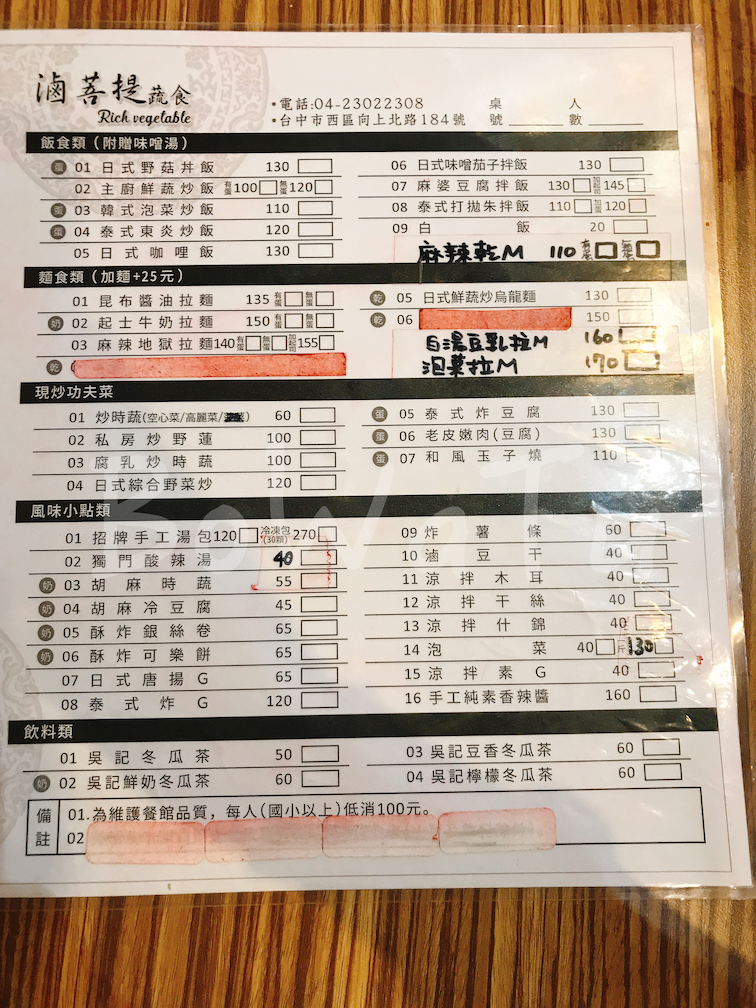 滷菩提蔬食
Rich vegetable
•電話:04-23022308
•台中市西區向上北路184號
桌號 人數
飯食類（附贈味噌湯）
蛋 01 日式野菇丼飯 130
02 主廚鮮蔬炒飯 有蛋100 無蛋120
蛋 03 韓式泡菜炒飯 110
蛋 04 泰式東炎炒飯 120
05 日式咖哩飯 130
06 日式味噌茄子拌飯 130
07 麻婆豆腐拌飯 130 加起司145
08 泰式打拋朱拌飯 110 加蛋120
09 白飯 20
麻辣乾M 110 有蛋 無蛋
麵食類（加麵+25元）
01 昆布醬油拉麵 135 有蛋 無蛋
奶 02 起士牛奶拉麵 150 有蛋 無蛋
03 麻辣地獄拉麵 140 有蛋 無蛋 加起司155
乾
乾 05 日式鮮蔬炒烏龍麵 130
乾 06 150
白湯豆乳拉M 160
泡菜拉M 170
現炒功夫菜
01 炒時蔬(空心菜/高麗菜/ ) 60
02 私房炒野蓮 100
03 腐乳炒時蔬 100
04 日式綜合野菜炒 120
蛋 05 泰式炸豆腐 130
蛋 06 老皮嫩肉(豆腐) 130
蛋 07 和風玉子燒 110
風味小點類
01 招牌手工湯包 120 冷凍包*(30顆) 270
02 獨門酸辣湯 40
奶 03 胡麻時蔬 55
奶 04 胡麻冷豆腐 45
奶 05 酥炸銀絲卷 65
奶 06 酥炸可樂餅 65
07 日式唐揚G 65
08 泰式炸G 120
09 炸薯條 60
10 滷豆干 40
11 涼拌木耳 40
12 涼拌干絲 40
13 涼拌什錦 40
14 泡菜 40 斤130
15 涼拌素G 40
16 手工純素香辣醬 160
飲料類
01 吳記冬瓜茶 50
奶 02 吳記鮮奶冬瓜茶 60
03 吳記豆香冬瓜茶 60
04 吳記檸檬冬瓜茶 60
備註
01.為維護餐館品質，每人(國小以上)低消100元。
02